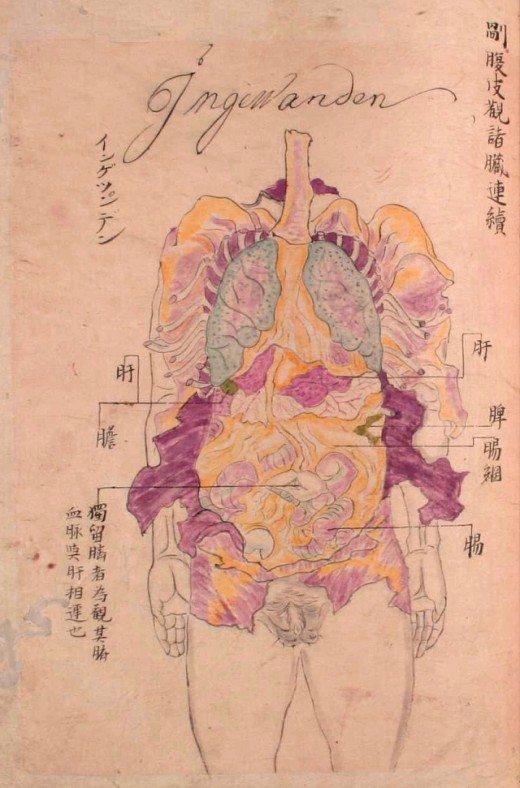 剮腹皮觀諸臟連續
Ingewanden
インゲワンデン
肝
脾
腸網
腸
肝
膽
獨留臍者為觀其臍
血脉與肝相連也